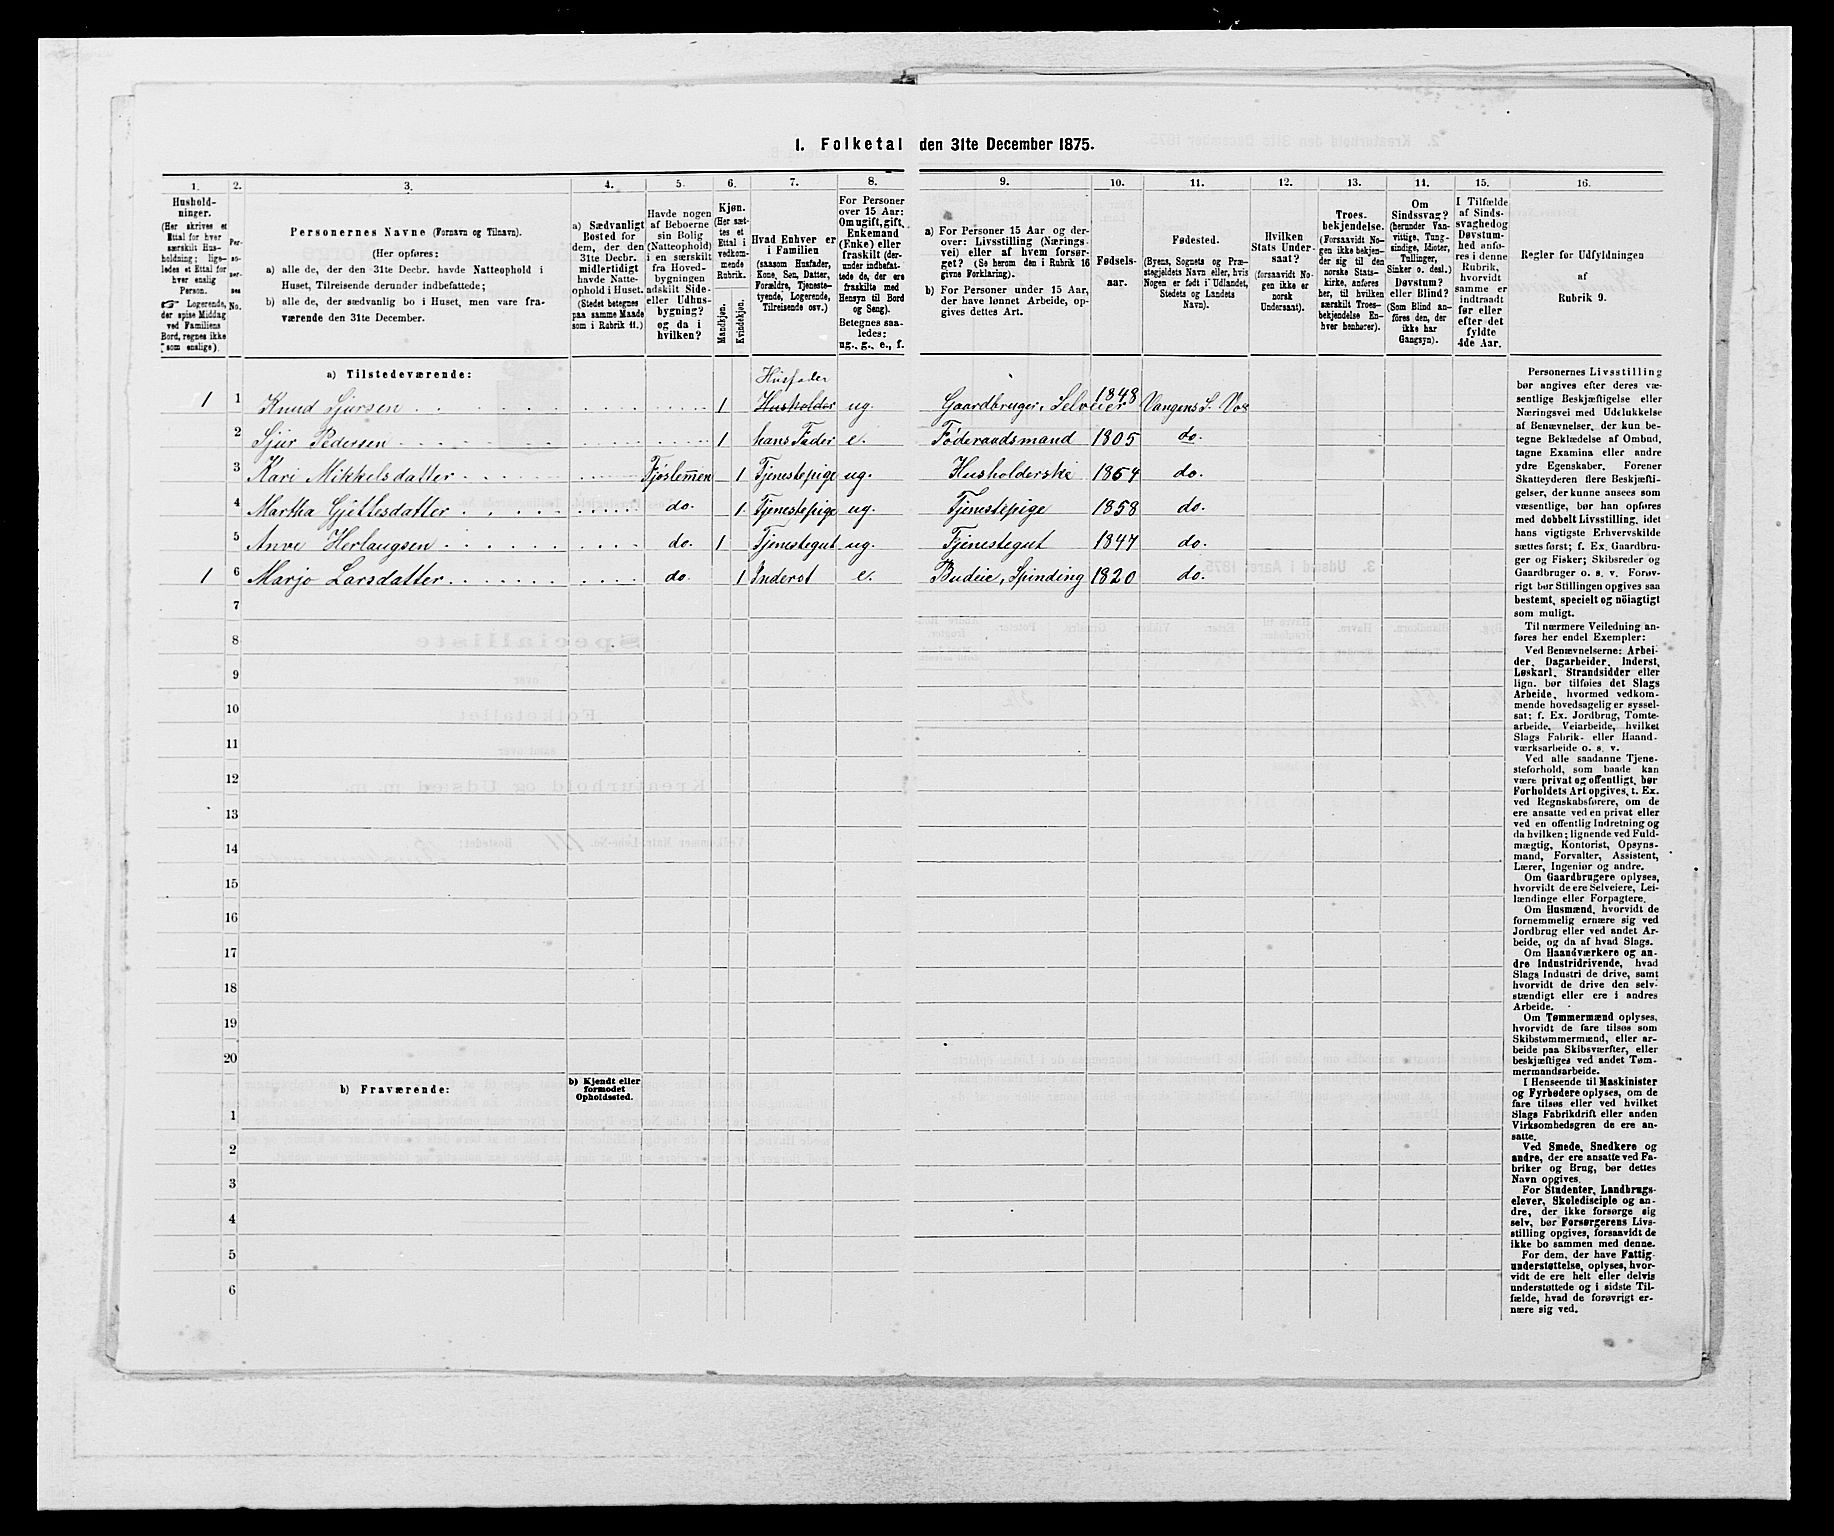 1. Folketal den 31te December 1875.
1. 2. 3. 4. 5. 6. 7. 8. 9. 10. 11. 12. 13. 14. 15. 16.
Husholdninger.
(Her skrives et
Ettal for hver
særskilt Husholdning;
ligeledes et Ettal for
hver enslig
Person.
☞ Logerende,
der spise Middag
ved Familiens
Bord, regnes ikke
som enslige).
Personernes No.
Personernes Navne (Fornavn og Tilnavn).
(Her opføres:
a) alle de, der den 31te Decbr. havde Natteophold i
Huset, Tilreisende derunder indbefattede;
b) alle de, der sædvanlig bo i Huset, men vare fraværende
den 31te December.
a) Sædvanligt
Bosted for
dem, der den
31te Decbr.
midlertidigt
havde Natteophold
i Huset.
(Stedet betegnes
paa samme Maade
som i Rubrik 11.)
Havde nogen
af Beboerne
sin Bolig
(Natteophold)
i en særskilt
fra Hovedbygningen
adskilt Side-
eller Udhusbygning?
og da i
hvilken?
Kjøn.
(Her sættes
et
Ettal i
vedkommende
Rubrik.
Mandkjøn.
Kvindekjøn.
Hvad Enhver er
i Familien
(saasom Husfader,
Kone, Søn, Datter,
Forældre, Tjenestetyende,
Logerende,
Tilreisende osv.)
For Personer
over 15 Aar:
Om ugift, gift,
Enkemand
(Enke) eller
fraskilt (derunder
indbefattede
de, der ere
fraskilte med
Hensyn til Bord
og Seng).
Betegnes saaledes:
ug., g., e., f.
a) For Personer 15 Aar og derover:
Livsstilling (Næringsvei)
eller af hvem forsørget?
(Se herom den i Rubrik 16
givne Forklaring).
b) For Personer under 15 Aar,
der have lønnet Arbeide, opgives
dettes Art.
Fødselsaar.
Fødested.
(Byens, Sognets og Præstegjeldets
Navn eller, hvis
Nogen er født i Udlandet,
Stedets og Landets
Navn).
Hvilken
Stats Undersaat?
(forsaavidt Nogen
ikke er
norsk
Undersaat).
Troesbekjendelse.
(Forsaavidt Nogen
ikke bekjender
sig til den
norske Statskirke,
anføres
her, til hvilken
særskilt Troesbekjendelse
Enhver
henhører).
Om
Sindssvag?
(herunder Vanvittige,
Tungsindige,
Idioter,
Tullinger,
Sinker o. desl.)
Døvstum?
eller Blind?
(Som Blind anføres
den, der
ikke har
Gangsyn).
I Tilfælde
af Sindssvaghed
og
Døvstumhed
anføres
i denne
Rubrik,
hvorvidt
samme er
indtraadt
før eller
efter det
fyldte
4de Aar.
Regler for Udfyldningen
af
Rubrik 9.
a) Tilstedeværende:
1 1 Knud Sjursen 1 Husfader Husholder ug. Gaardbruger, Selveier 1848 Vangens S. Vos
2 Sjur Pedersen 1 hans Fader e. Föderaadsmand 1805 do.
3 Kari Mikkelsdatter Fjöslemen 1 Tjenestepige ug. Husholderske 1854 do.
4 Martha Gjittesdatter do. 1 Tjenestepige ug. Tjenestepige 1858 do.
5 Anve Herlaugsen do. 1 Tjenestegut ug. Tjenestegut 1847 do.
1 6 Marjo Larsdatter do. 1 Inderst e. Budeie, Spinding 1820 do.
7
8
9
10
11
12
13
14
15
16
17
18
19
20
b) Fraværende:
b) Kjendt eller
formodet
Opholdssted.
1
2
3
4
5
6
Personernes Livsstilling
bør angives efter deres væsentlige
Beskjæftigelse eller
Næringsvei med Udelukkelse
af Benævnelser, der kun betegne
Beklædelse af Ombud,
tagne Examina eller andre
ydre Egenskaber. Forener
Skatteyderen flere Beskjæftigelser,
der kunne ansees som
væsentlige, bør han opføres
med dobbelt Livsstilling, idet
hans vigtigste Erhvervskilde
sættes først; f. Ex. Gaardbruger
og Fisker; Skibsreder og
Gaardbruger o. s. v. Forøvrigt
bør Stillingen opgives saa
bestemt, specielt og nöiagtigt
som muligt.
Til nærmere Veiledning anføres
her endel Exempler:
Ved Benævnelserne: Arbeider,
Dagarbeider, Inderst,
Løskarl, Strandsidder eller
lign. bør tilføies det Slags
Arbeide, hvormed vedkommende
hovedsagelig er sysselsat;
f. Ex. Jordbrug, Tomtearbeide,
Veiarbeide, hvilket
Slags Fabrik- eller Haandværksarbeide
o. s. v.
Ved alle saadanne Tjenesteforhold,
som baade kan
være privat og offentligt, bør
Forholdets Art opgives, f. Ex.
ved Regnskabsførere, om de
ere ansatte ved en privat eller
ved en offentlig Indretning og
da hvilken; lignende ved Fuldmægtig,
Kontorist, Opsynsmand,
Forvalter, Assistent,
Lærer, Ingeniør og andre.
Om Gaardbrugere oplyses,
hvorvidt de ere Selveiere, Leilændinge
eller Forpagtere.
Om Husmænd, hvorvidt de
fornemmelig ernære sig ved
Jordbrug eller ved andet Arbeide,
og da af hvad Slags.
Om Haandværkere og andre
Industridrivende, hvad
Slags Industri de drive, samt
hvorvidt de drive den selvstændigt
eller ere i andres
Arbeide.
Om Tømmermænd oplyses,
hvorvidt de fare tilsøs som
Skibstømmermænd, eller arbeide
paa Skibsværfter, eller
beskjæftiges ved andet Tømmermandsarbeide.
I Henseende til Maskinister
og Fyrbødere oplyses, om de
fare tilsøs eller ved hvilket
Slags Fabrikdrift eller anden
Virksomhedsgren de ere ansatte.
Ved Smede, Snedkere og
andre, der ere ansatte ved Fabriker
og Brug, bør dettes
Navn opgives.
For Studenter, Landbrugselever,
Skoledisciple og andre,
der ikke forsørge sig
selv, bør Forsørgerens Livsstilling
opgives, forsaavidt de
ikke bo sammen med denne.
For dem, der have Fattigunderstøttelse,
oplyses, hvorvidt
de ere helt eller delvis
understøttede og i sidste Tilfælde,
hvad de forøvrigt ernære
sig ved.